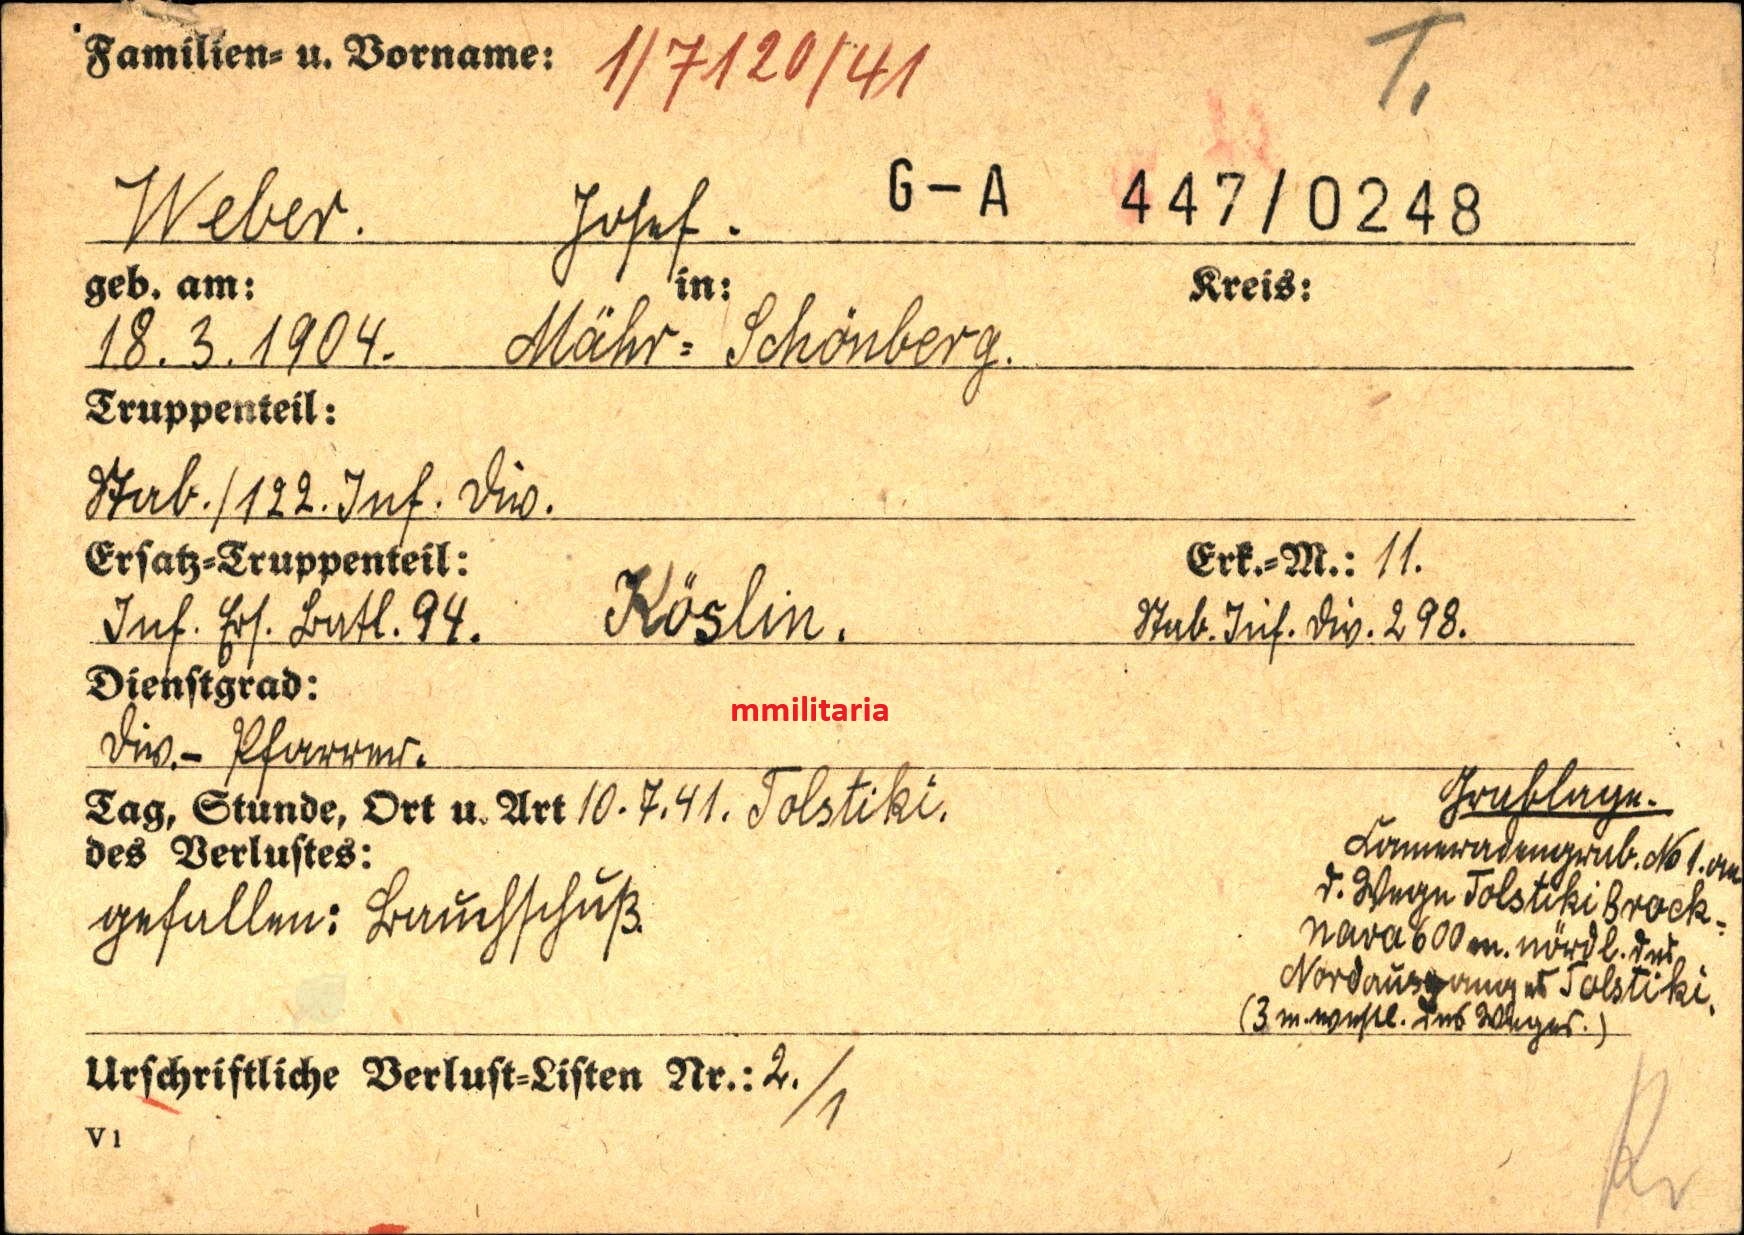 Familien- u. Vorname: 1/7120/41 T.
Weber. Josef. G-A 447/0248
geb. am: in: Kreis:
18. 3. 1904. Mähr- Schönberg.
Truppenteil:
Stab./122. Inf. Div.
Ersatz-Truppenteil: Erk.-M.: 11.
Inf. Ers. Batl. 94. Köslin. Stab. Inf. Div. 298.
Dienstgrad:
mmilitaria
Div.- Pfarrer.
Tag, Stunde, Ort u. Art 10.7.41. Tolstiki.
des Verlustes:
gefallen: Bauchschuß.
Grablage.
Kameradengrab. No 1. an
d. Wege Tolstiki Brock-
nara 600 m. nördl. des
Nordausganges Tolstiki.
(3 m. westl. des Weges.)
Urschriftliche Verlust-Listen Nr.: 2./1
V 1